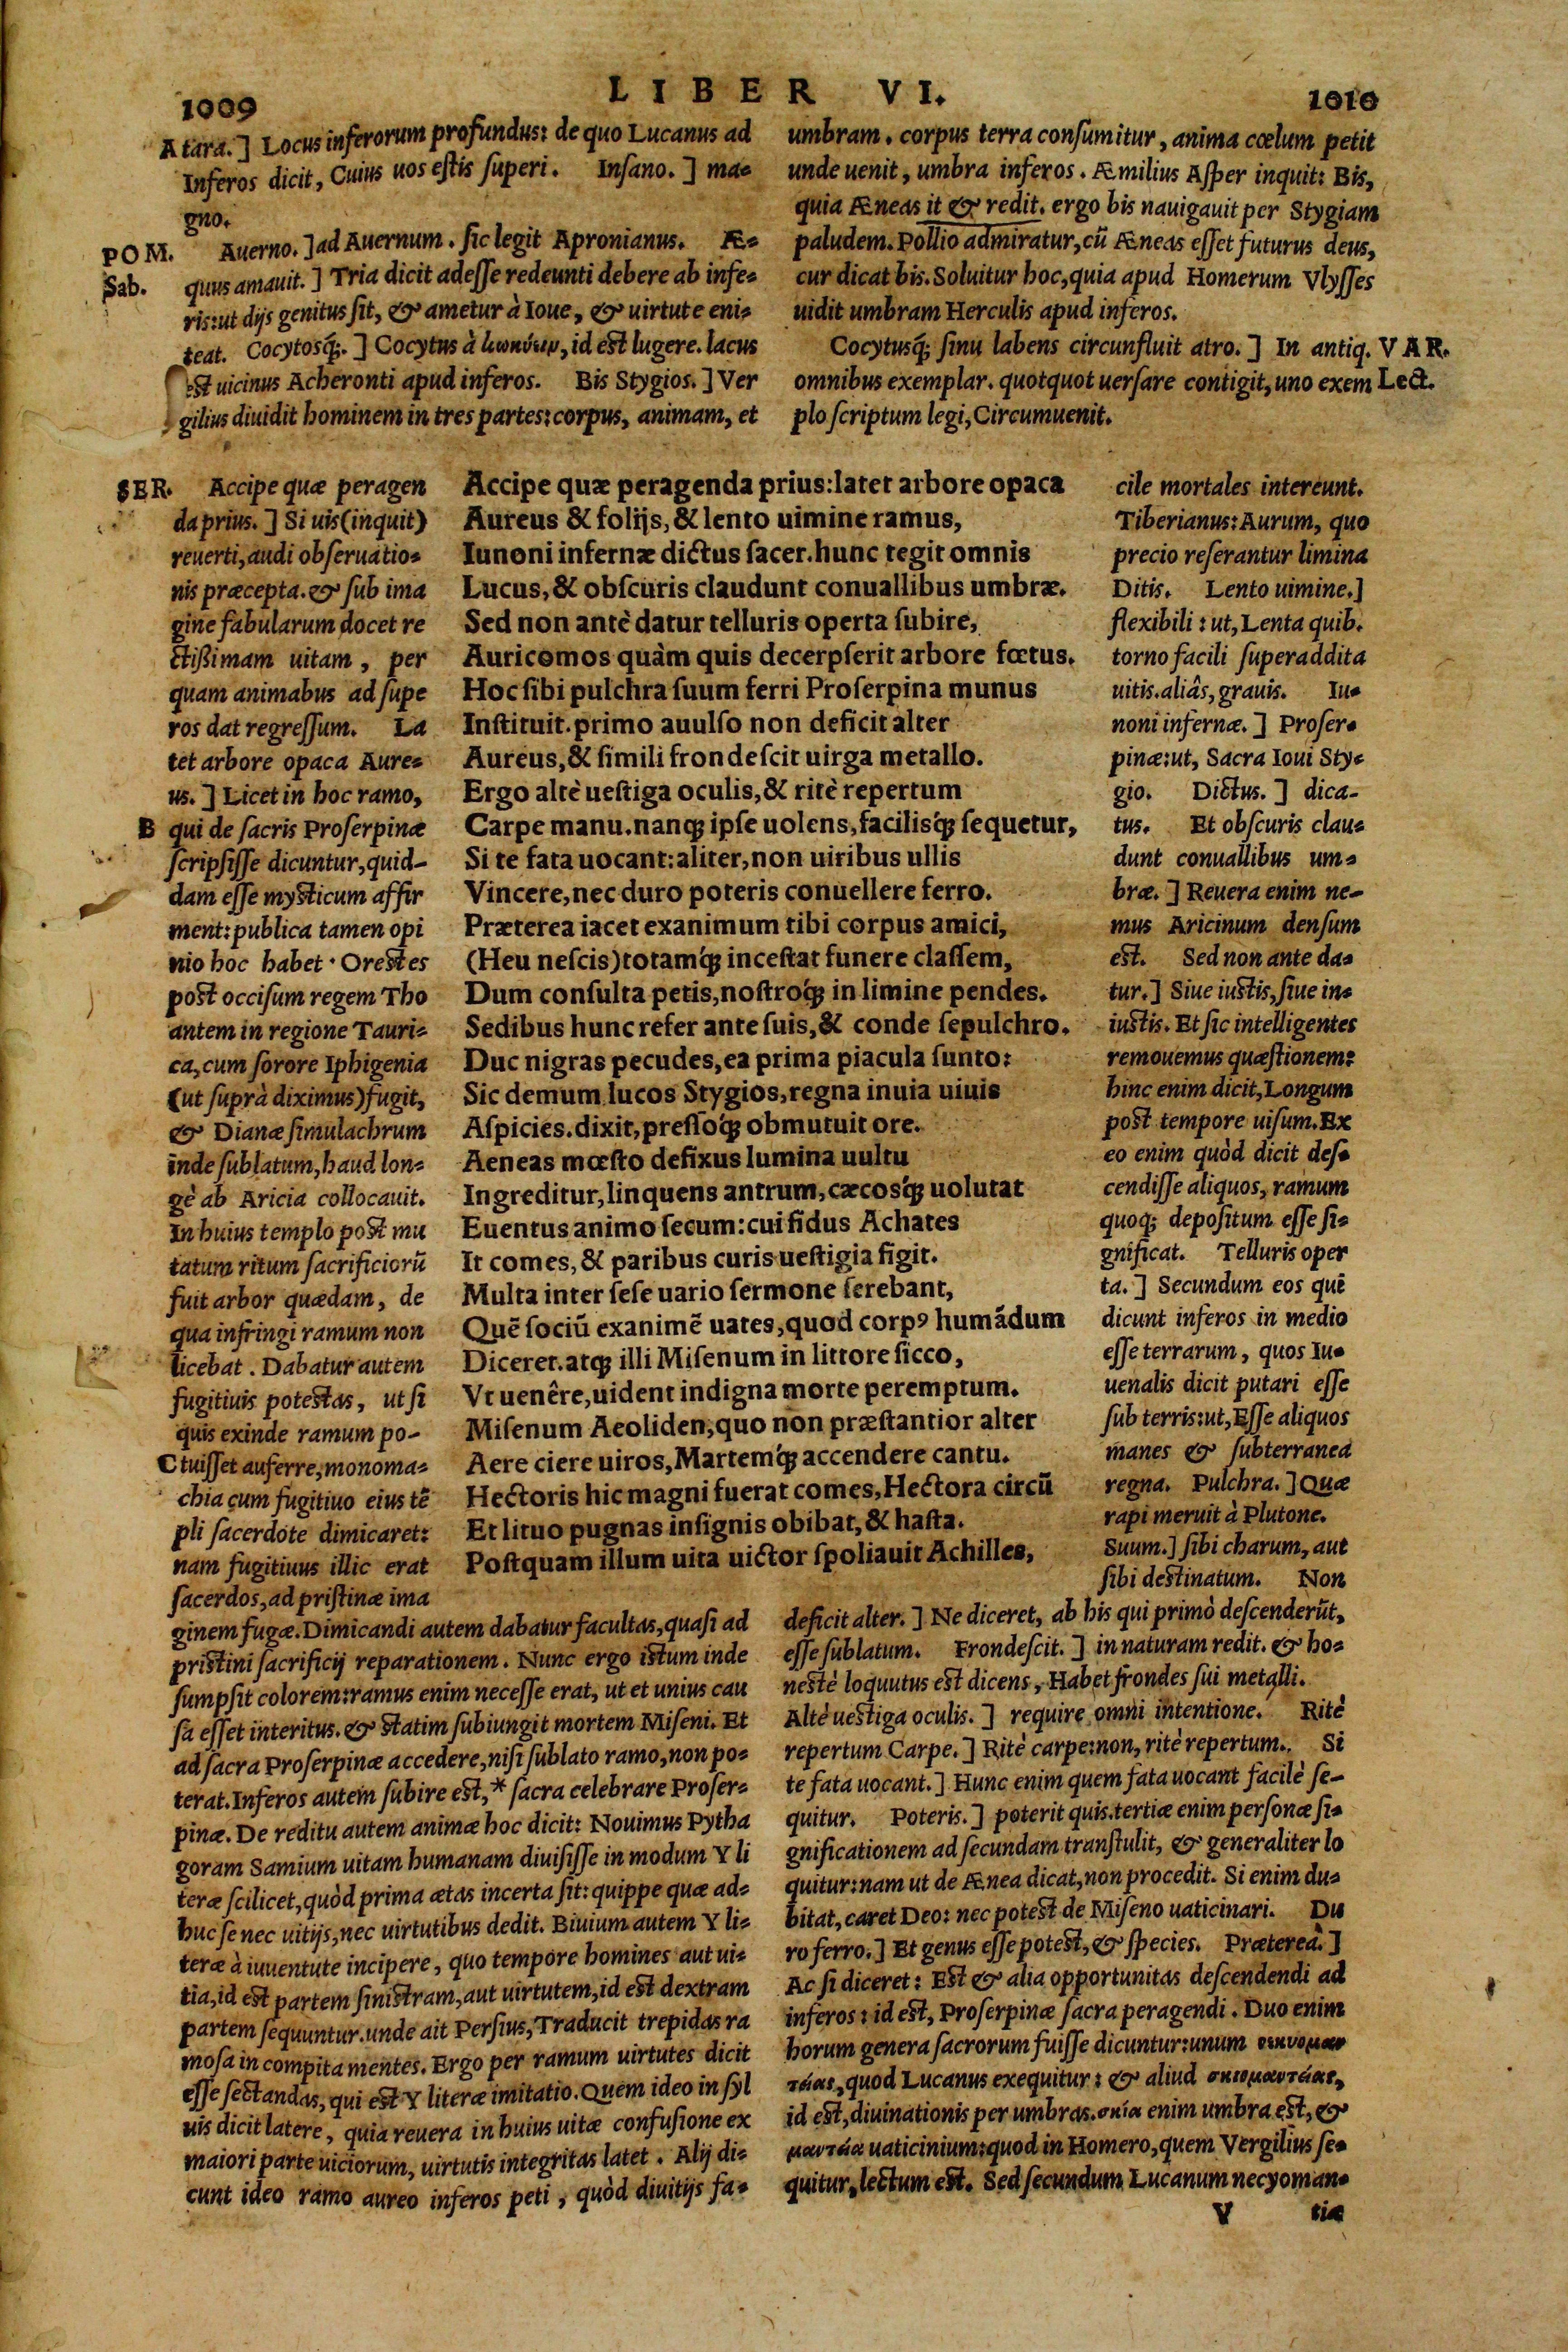 1009
LIBER VI.
1010
A tara.] Locus inferorum profundus: de quo Lucanus ad
Inferos dicit, Cuius uos estis superi. Insano.] ma-
gno.
POM. Auerno.] ad Auernum. sic legit Apronianus. Æ-
Sab. quus amauit.] Tria dicit adesse redeunti debere ab infe-
ris: ut dijs genitus sit, & ametur à Ioue, & uirtute eni-
teat. Cocytosq́;.] Cocytus à κωκύειν, id est lugere. lacus
est uicinus Acheronti apud inferos. Bis Stygios.] Ver
gilius diuidit hominem in tres partes: corpus, animam, et
umbram. corpus terra consumitur, anima cœlum petit
unde uenit, umbra inferos. Æmilius Asper inquit: Bis,
quia Æneas it & redit. ergo bis nauigauit per Stygiam
paludem. Pollio admiratur, cũ Æneas esset futurus deus,
cur dicat bis. Soluitur hoc, quia apud Homerum Vlysses
uidit umbram Herculis apud inferos.
Cocytusq́; sinu labens circunfluit atro.] In antiq. VAR.
omnibus exemplar. quotquot uersare contigit, uno exem Lect.
plo scriptum legi, Circumuenit.
SER. Accipe quæ peragen
da prius.] Si uis (inquit)
reuerti, audi obseruatio-
nis præcepta. & sub ima
gine fabularum docet re
ctißimam uitam, per
quam animabus ad supe
ros dat regressum. La
tet arbore opaca Aure-
us.] Licet in hoc ramo,
B qui de sacris Proserpinæ
scripsisse dicuntur, quid-
dam esse mysticum affir
ment: publica tamen opi
nio hoc habet. Orestes
post occisum regem Tho
antem in regione Tauri-
ca, cum sorore Iphigenia
(ut suprà diximus) fugit,
& Dianæ simulachrum
inde sublatum, haud lon-
gè ab Aricia collocauit.
In huius templo post mu
tatum ritum sacrificiorũ
fuit arbor quædam, de
qua infringi ramum non
licebat. Dabatur autem
fugitiuis potestas, ut si
quis exinde ramum po-
C tuisset auferre, monoma-
chia cum fugitiuo eius tẽ
pli sacerdote dimicaret:
nam fugitiuus illic erat
sacerdos, ad pristinæ ima
Accipe quæ peragenda prius: latet arbore opaca
Aureus & folijs, & lento uimine ramus,
Iunoni infernæ dictus sacer. hunc tegit omnis
Lucus, & obscuris claudunt conuallibus umbræ.
Sed non antè datur telluris operta subire,
Auricomos quàm quis decerpserit arbore fœtus.
Hoc sibi pulchra suum ferri Proserpina munus
Instituit. primo auulso non deficit alter
Aureus, & simili frondescit uirga metallo.
Ergo altè uestiga oculis, & ritè repertum
Carpe manu. nanq; ipse uolens, facilisq́; sequetur,
Si te fata uocant: aliter, non uiribus ullis
Vincere, nec duro poteris conuellere ferro.
Præterea iacet exanimum tibi corpus amici,
(Heu nescis) totamq́; incestat funere classem,
Dum consulta petis, nostroq́; in limine pendes.
Sedibus hunc refer ante suis, & conde sepulchro.
Duc nigras pecudes, ea prima piacula sunto:
Sic demum lucos Stygios, regna inuia uiuis
Aspicies. dixit, pressoq́; obmutuit ore.
Aeneas mœsto defixus lumina uultu
Ingreditur, linquens antrum, cæcosq́; uolutat
Euentus animo secum: cui fidus Achates
It comes, & paribus curis uestigia figit.
Multa inter sese uario sermone serebant,
Quẽ sociũ exanimẽ uates, quod corpꝰ humãdum
Diceret. atq; illi Misenum in littore sicco,
Vt uenêre, uident indigna morte peremptum.
Misenum Aeoliden, quo non præstantior alter
Aere ciere uiros, Martemq́; accendere cantu.
Hectoris hic magni fuerat comes, Hectora circũ
Et lituo pugnas insignis obibat, & hasta.
Postquam illum uita uictor spoliauit Achilles,
cile mortales intereunt.
Tiberianus: Aurum, quo
precio reserantur limina
Ditis. Lento uimine.]
flexibili: ut, Lenta quib.
torno facili superaddita
uitis. aliâs, grauis. Iu-
noni infernæ.] Proser-
pinæ: ut, Sacra Ioui Sty-
gio. Dictus.] dica-
tus. Et obscuris clau-
dunt conuallibus um-
bræ.] Reuera enim ne-
mus Aricinum densum
est. Sed non ante da-
tur.] Siue iustis, siue in-
iustis. Et sic intelligentes
remouemus quæstionem:
hinc enim dicit, Longum
post tempore uisum. Ex
eo enim quòd dicit des-
cendisse aliquos, ramum
quoq; depositum esse si-
gnificat. Telluris oper
ta.] Secundum eos quẽ
dicunt inferos in medio
esse terrarum, quos Iu-
uenalis dicit putari esse
sub terris: ut, Esse aliquos
manes & subterranea
regna. Pulchra.] Quæ
rapi meruit à Plutone.
Suum.] sibi charum, aut
sibi destinatum. Non
ginem fugæ. Dimicandi autem dabatur facultas, quasi ad
pristini sacrificij reparationem. Nunc ergo istum inde
sumpsit colorem: ramus enim necesse erat, ut et unius cau
sa esset interitus. & statim subiungit mortem Miseni. Et
ad sacra Proserpinæ accedere, nisi sublato ramo, non po-
terat. Inferos autem subire est, * sacra celebrare Proser-
pinæ. De reditu autem animæ hoc dicit: Nouimus Pytha
goram Samium uitam humanam diuisisse in modum Y li
teræ scilicet, quòd prima ætas incerta sit: quippe quæ ad-
huc se nec uitijs, nec uirtutibus dedit. Biuium autem Y li-
teræ à iuuentute incipere, quo tempore homines aut ui-
tia, id est partem sinistram, aut uirtutem, id est dextram
partem sequuntur. unde ait Persius, Traducit trepidas ra
mosa in compita mentes. Ergo per ramum uirtutes dicit
esse sectandas, qui est Y literæ imitatio. Quem ideo in syl
uis dicit latere, quia reuera in huius uitæ confusione ex
maiori parte uiciorum, uirtutis integritas latet. Alij di-
cunt ideo ramo aureo inferos peti, quòd diuitijs fa-
deficit alter.] Ne diceret, ab his qui primò descenderũt,
esse sublatum. Frondescit.] in naturam redit. & ho-
nestè loquutus est dicens, Habet frondes sui metalli.
Altè uestiga oculis.] require omni intentione. Ritè
repertum Carpe.] Ritè carpe: non, ritè repertum. Si
te fata uocant.] Hunc enim quem fata uocant facilè se-
quitur. Poteris.] poterit quis. tertiæ enim personæ si-
gnificationem ad secundam transtulit, & generaliter lo
quitur: nam ut de Ænea dicat, non procedit. Si enim du-
bitat, caret Deo: nec potest de Miseno uaticinari. Du
ro ferro.] Et genus esse potest, & species. Prætereà.]
Ac si diceret: Est & alia opportunitas descendendi ad
inferos: id est, Proserpinæ sacra peragendi. Duo enim
horum genera sacrorum fuisse dicuntur: unum
quod Lucanus exequitur: & aliud σκιομαντείας,
id est, diuinationis per umbras. σκία enim umbra est, &
μαντεία uaticinium: quod in Homero, quem Vergilius se-
quitur, lectum est. Sed secundum Lucanum necyoman-
V tiæ